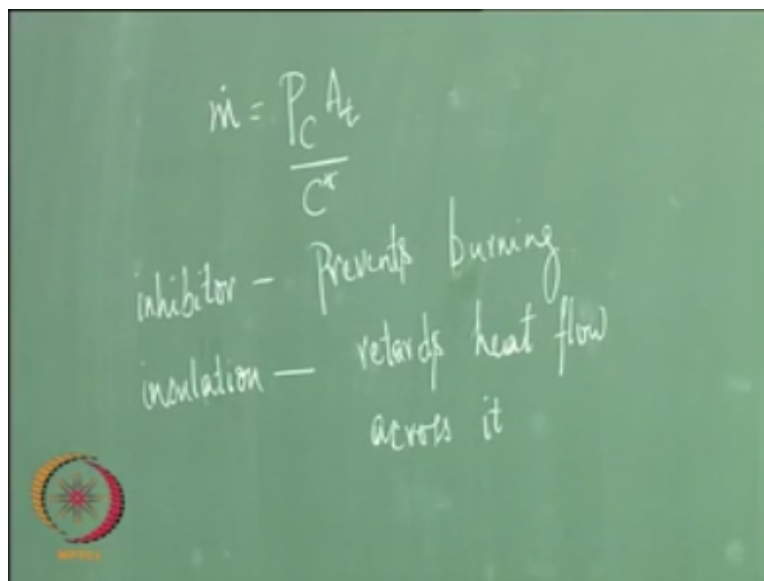 ṁ = P_C A_t
C*
inhibitor - Prevents burning
insulation — retards heat flow
across it